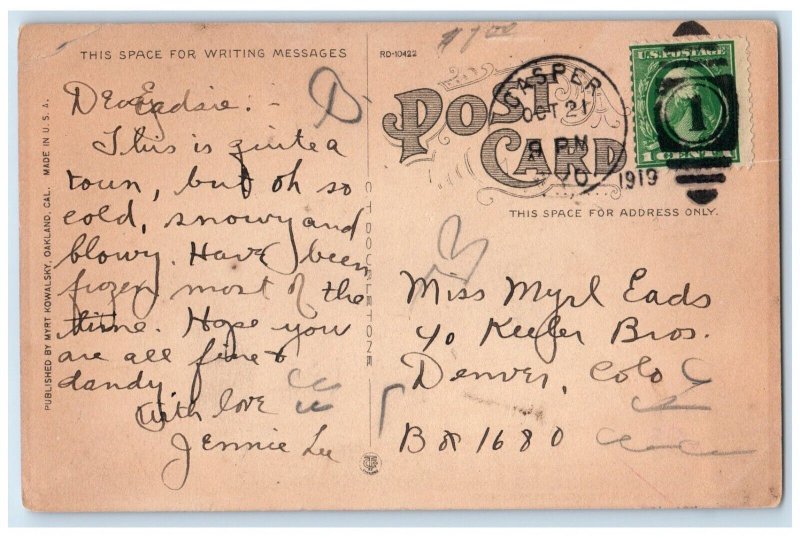 THIS SPACE FOR WRITING MESSAGES
RD-10422
$1.00
Dear Eadsie: -
This is quite a
town, but oh so
cold, snowy and
blowy. Have been
frozen most of the
time. Hope you
are all fine &
dandy.
With love
Jennie Lee
PUBLISHED BY MYRT KOWALSKY, OAKLAND, CAL. MADE IN U.S.A.
C T DOUBLETONE
POST CARD
CASPER
OCT 21
8 PM
1919
U.S. POSTAGE
1 CENT 1
1
THIS SPACE FOR ADDRESS ONLY.
Miss Myrl Eads
c/o Keeler Bros.
Denver, Colo
Box 1680